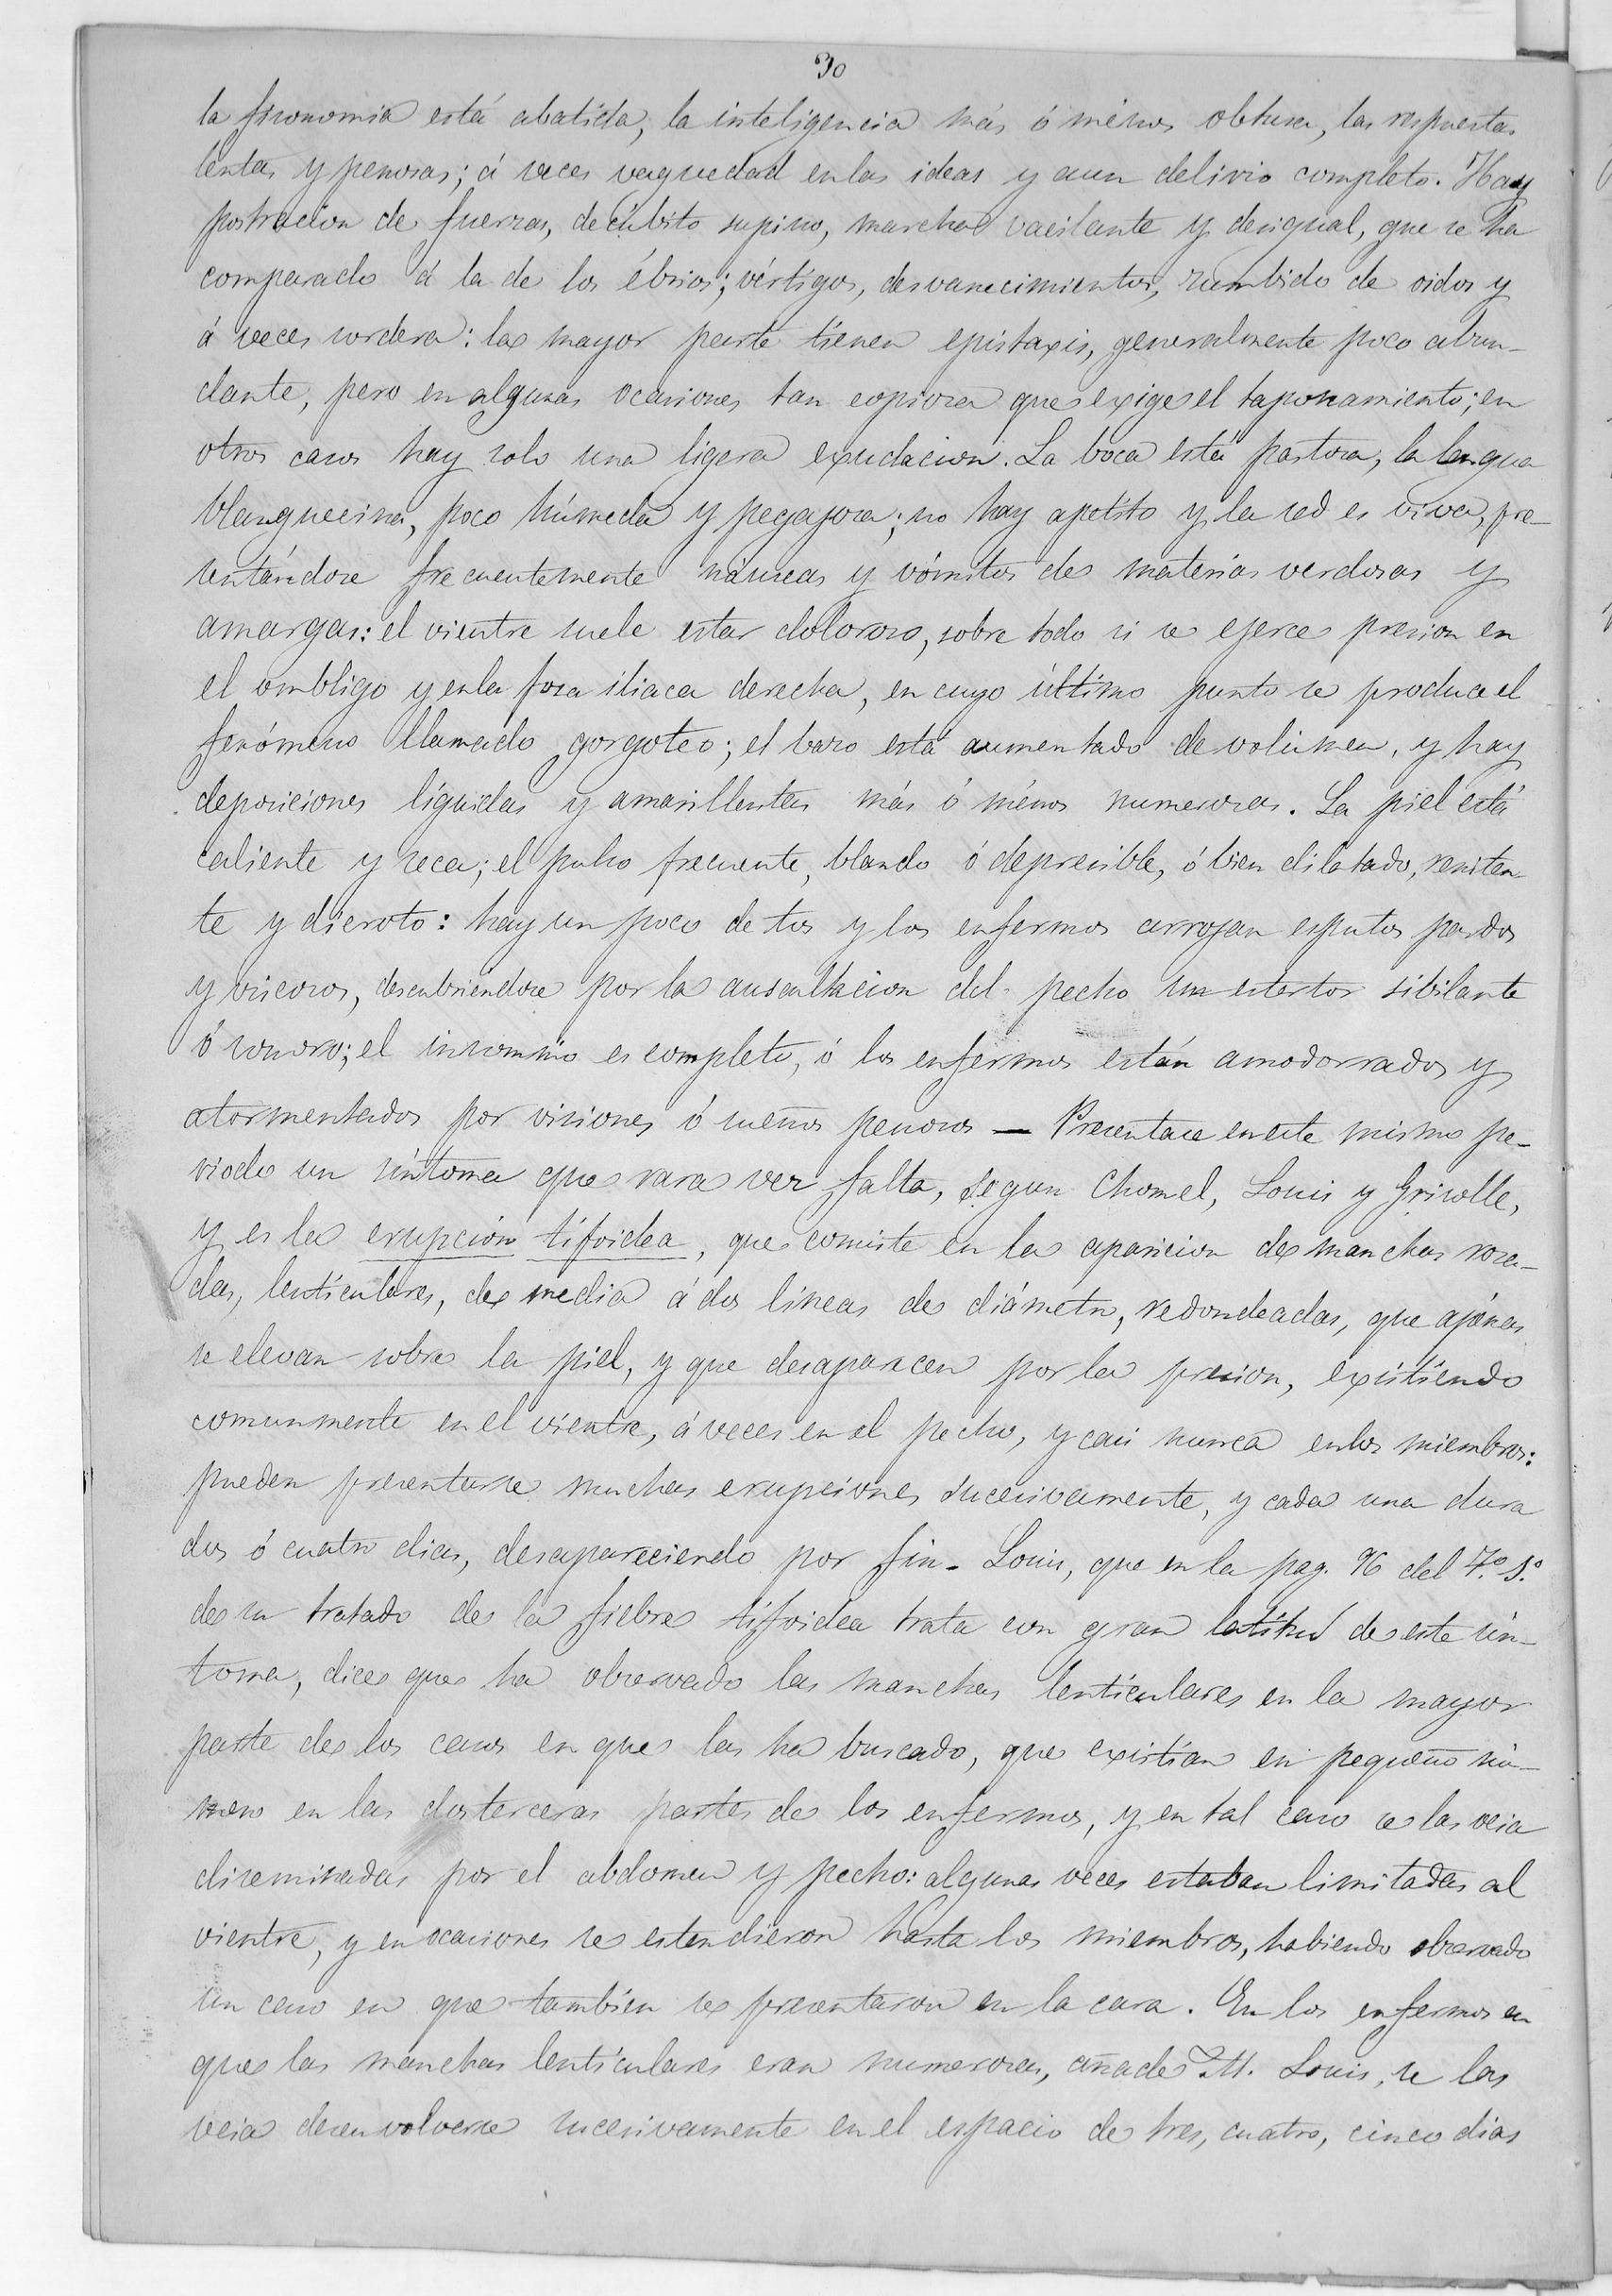 30
la fisonomia está abatida, la inteligencia más ó ménos obtusa, las respuestas
lentas y penosas; á veces vaguedad en las ideas y aun delirio completo. Hay
postracion de fuerzas, decúbito supino, marcha vacilante y desigual, que se ha
comparado á la de los ébrios; vértigos, desvanecimientos, zumbido de oidos y
á veces sordera: la mayor parte tienen epistaxis, generalmente poco abun-
dante, pero en algunas ocasiones tan copiosa que exige el taponamiento; en
otros casos hay solo una ligera exudacion. La boca está pastosa, la lengua
blanquecina, poco húmeda y pegajosa; no hay apetito y la sed es viva, pre-
sentándose frecuentemente náuseas y vómitos de materias verdosas y
amargas: el vientre suele estar doloroso, sobre todo si se ejerce presion en
el ombligo y en la fosa iliaca derecha, en cuyo último punto se produce el
fenómeno llamado gorgoteo; el bazo está aumentado de volúmen, y hay
deposiciones líquidas y amarillentas más ó ménos numerosas. La piel está
caliente y seca; el pulso frecuente, blando ó depresible, ó bien dilatado, resisten-
te y dicroto: hay un poco de tos y los enfermos arrojan esputos pardos
y viscosos, descubriéndose por la auscultacion del pecho un estertor sibilante
ó sonoro; el insomnio es completo, ó los enfermos están amodorrados y
atormentados por visiones ó sueños penosos — Presentase en este mismo pe-
riodo un síntoma que rara vez falta, segun Chomel, Louis y Grisolle,
y es la erupcion tifoidea, que consiste en la aparicion de manchas rosa-
das, lenticulares, de media á dos líneas de diámetro, redondeadas, que apénas
se elevan sobre la piel, y que desaparecen por la presion, existiendo
comunmente en el vientre, á veces en el pecho, y casi nunca en los miembros:
pueden presentarse muchas erupciones sucesivamente, y cada una dura
dos ó cuatro dias, desapareciendo por fin. Louis, que en la pag. 96 del
de su tratado de la fiebre tifoidea trata con gran latitud de este sín-
toma, dice que ha observado las manchas lenticulares en la mayor
parte de los casos en que las ha buscado, que existían en pequeño nú-
mero en las dos terceras partes de los enfermos, y en tal caso se las veia
diseminadas por el abdomen y pecho: algunas veces estaban limitadas al
vientre, y en ocasiones se estendieron hasta los miembros, habiendo observado
un caso en que tambien se presentaron en la cara. En los enfermos en
que las manchas lenticulares eran numerosas, añade M. Louis, se las
veia desenvolverse sucesivamente en el espacio de tres, cuatro, cinco dias